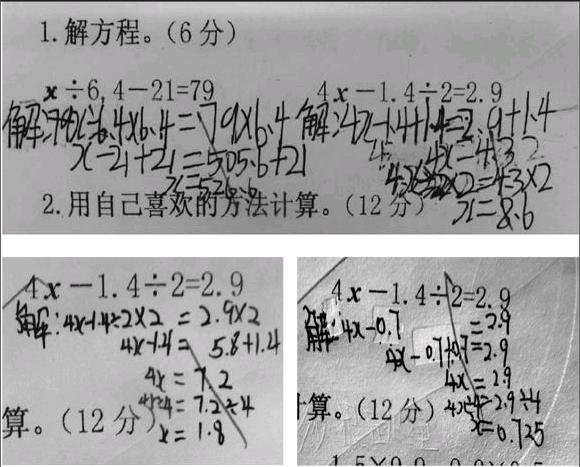 1.解方程。(6分)
x÷6.4-21=79 4x-1.4÷2=2.9
解:79x÷6.4×6.4=79×6.4 解:4x-1.4+1.4=2.9+1.4
x-21+21=505.6+21 4x=4.3
x=526.6 4x÷2×2=4.3×2
2.用自己喜欢的方法计算。(12分) x=8.6
4x-1.4÷2=2.9
解:4x-1.4÷2×2=2.9×2
4x-1.4=5.8+1.4
4x=7.2
4x÷4=7.2÷4
算。(12分) x=1.8
4x-1.4÷2=2.9
解:4x-0.7=2.9
4x-0.7+0.7=2.9
4x=2.9
算。(12分) 4x÷4=2.9÷4
x=0.725